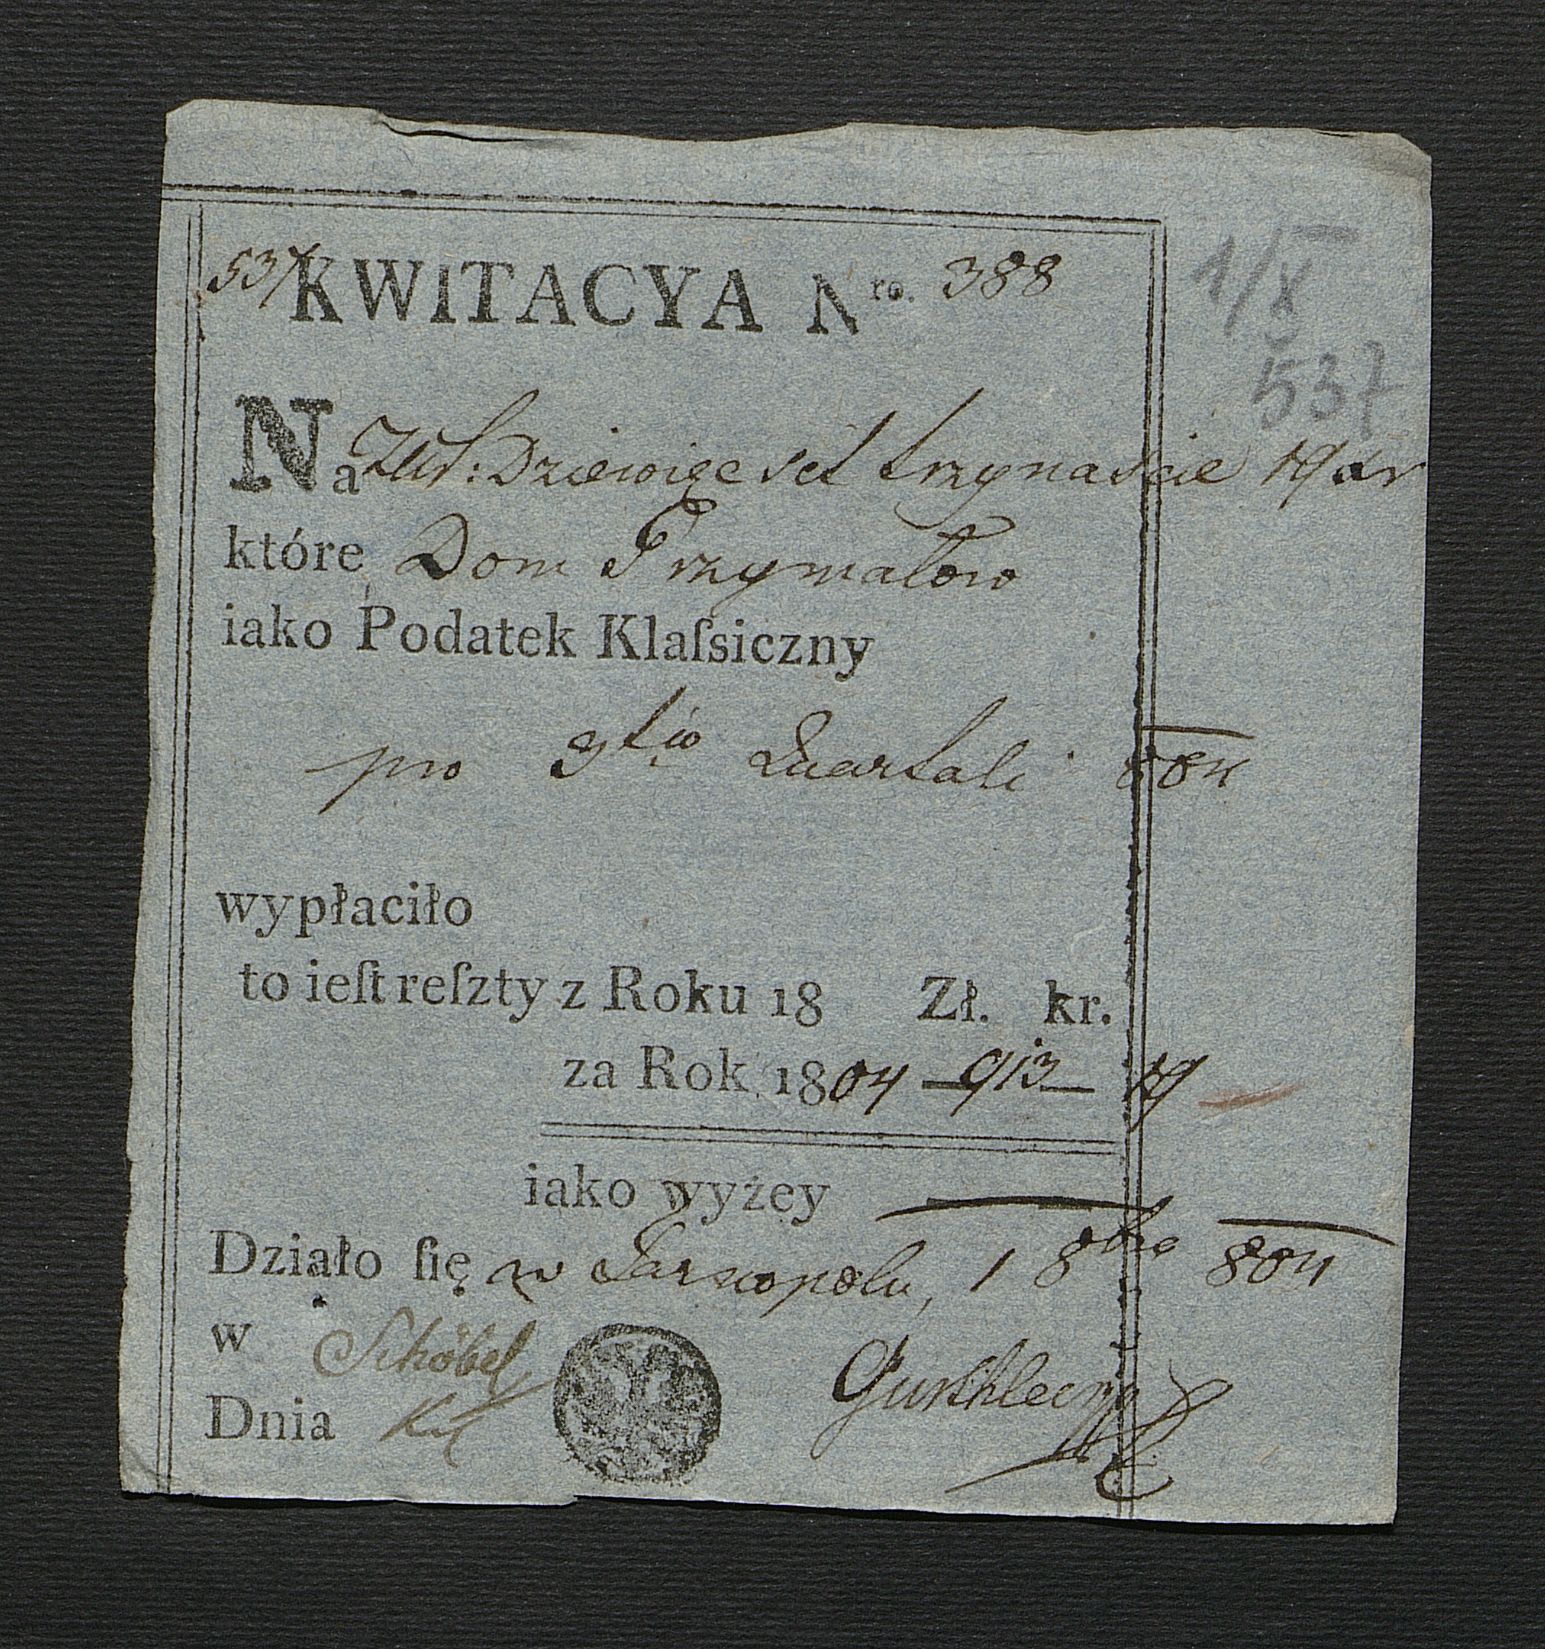 537 KWITACYA Nro. 388
1/X
537
Na Złł: Dziewięc set trzynascie 19 xr
które Dom Grzymałow
iako Podatek Klaſsiczny
pro 3tio Quartali 804
wypłaciło
to ieſt reſzty z Roku 18 Zł. kr.
za Rok 1804 — 913 — 19
iako wyżey
Działo ſię w Tarnopolu, 1 8bra 804
w Schöbel
Dnia